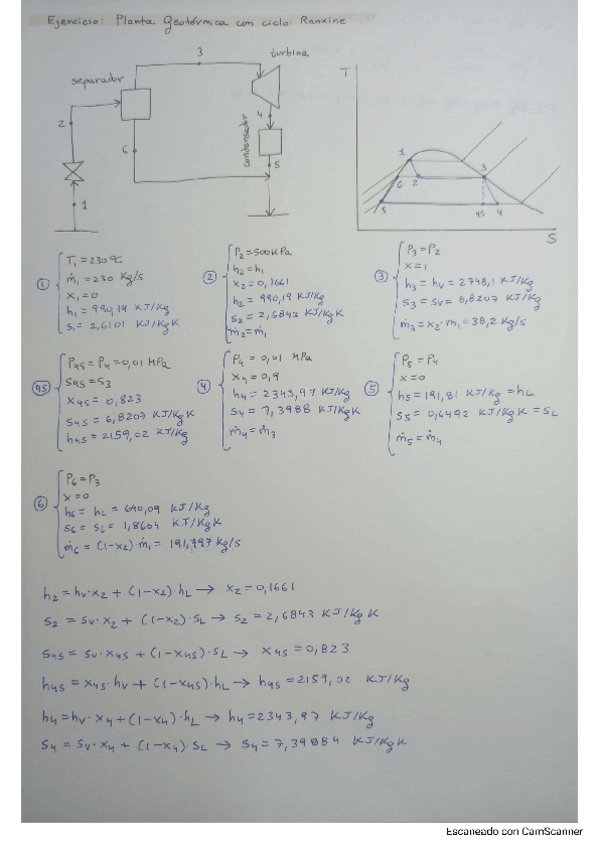 Ejercicio: Planta Geotérmica con ciclo Rankine
3
turbina
separador
T
2
4
condensador
6
5
1
1
6
2
3
5
4s
4
S
① T₁ = 230ºC
ṁ₁ = 230 Kg/s
x₁ = 0
h₁ = 990,19 KJ/Kg
s₁ = 2,6101 KJ/Kg K
② P₂ = 500KPa
h₂ = h₁
x₂ = 0,1661
h₂ = 990,19 KJ/Kg
s₂ = 2,6843 KJ/Kg K
ṁ₂ = ṁ₁
③ P₃ = P₂
x = 1
h₃ = hv = 2748,1 KJ/Kg
s₃ = sv = 6,8207 KJ/Kg K
ṁ₃ = x₂·ṁ₁ = 38,2 Kg/s
④s P₄s = P₄ = 0,01 MPa
s₄s = s₃
x₄s = 0,823
s₄s = 6,8207 KJ/Kg K
h₄s = 2159,02 KJ/Kg
④ P₄ = 0,01 MPa
x₄ = 0,9
h₄ = 2343,97 KJ/Kg
s₄ = 7,3988 KJ/Kg K
ṁ₄ = ṁ₃
⑤ P₅ = P₄
x = 0
h₅ = 191,81 KJ/Kg = hL
s₅ = 0,6492 KJ/Kg K = sL
ṁ₅ = ṁ₄
⑥ P₆ = P₃
x = 0
h₆ = hL = 640,09 KJ/Kg
s₆ = sL = 1,8604 KJ/Kg K
ṁ₆ = (1-x₂)·ṁ₁ = 191,797 Kg/s
h₂ = hv·x₂ + (1-x₂)·hL → x₂ = 0,1661
s₂ = sv·x₂ + (1-x₂)·sL → s₂ = 2,6843 KJ/Kg K
s₄s = sv·x₄s + (1-x₄s)·sL → x₄s = 0,823
h₄s = x₄s·hv + (1-x₄s)·hL → h₄s = 2159,02 KJ/Kg
h₄ = hv·x₄ + (1-x₄)·hL → h₄ = 2343,97 KJ/Kg
s₄ = sv·x₄ + (1-x₄)·sL → s₄ = 7,39884 KJ/Kg K
Escaneado con CamScanner